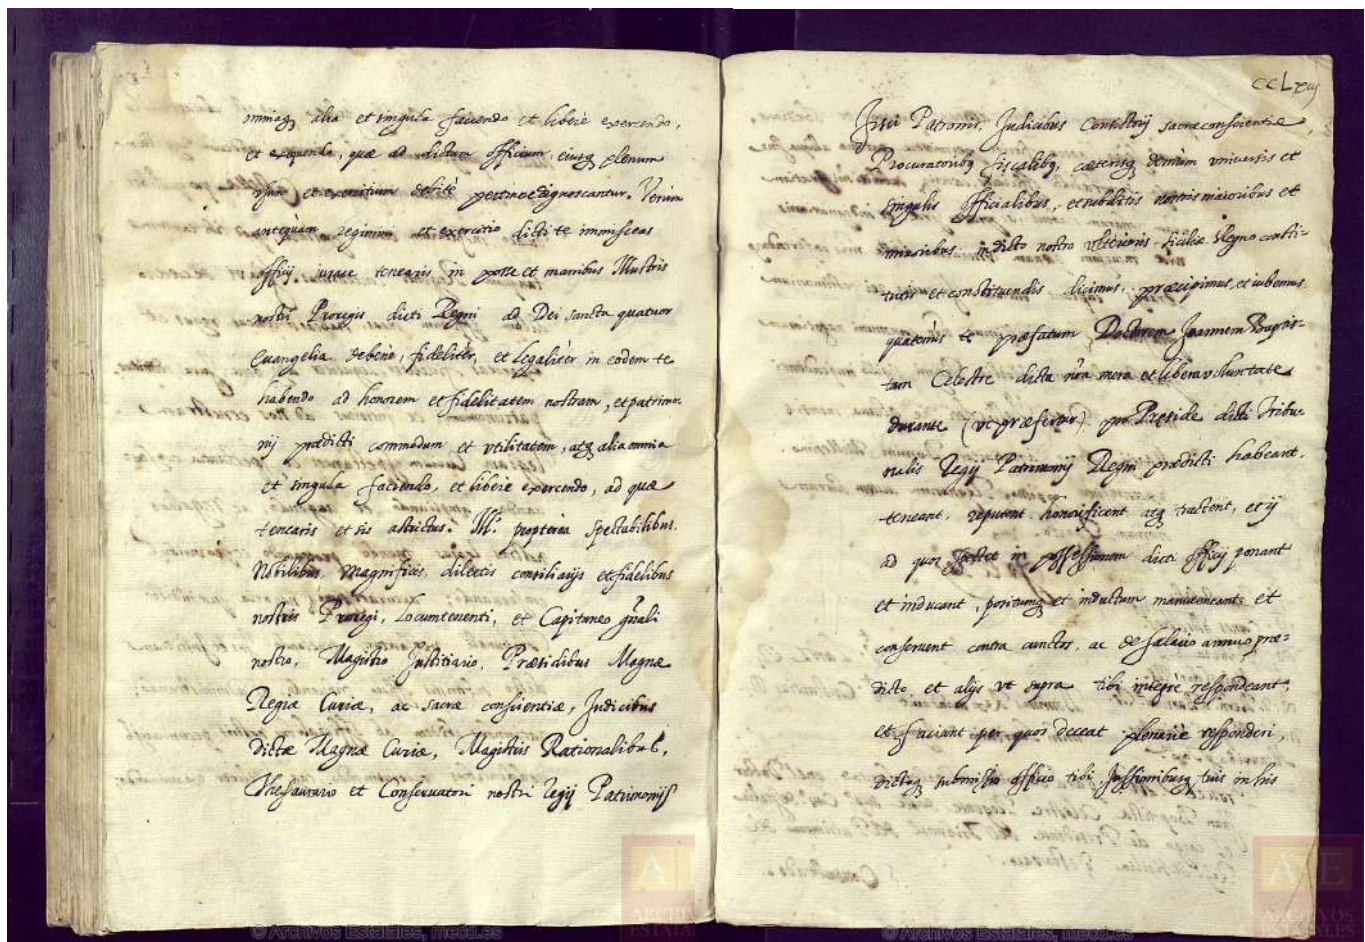 omniaq; alia et singula faciendo et libere exercendo,
et exequendo, quæ ad dictum officium, eiusq; plenum
usum et exercitium debitè pertinere dignoscantur. Verùm
antequàm regimini et exercitio dicti te immisceas
officij iurare tenearis in posse et manibus Illustris
nostri Proregis dicti Regni ad Dei sancta quatuor
Evangelia debenè, fideliter, et legaliter in eodem te
habendo ad honorem et fidelitatem nostram, et patrimo-
nij prædicti commodum et vtilitatem, atq; alia omnia
et singula faciendo, et libere exercendo, ad quæ
tenearis et sis astrictus. propterea Spectabilibus.
Nobilibus, Magnificis, dilectis consiliarijs et fidelibus
nostris Proregi, Locumtenenti, et Capitaneo gñali
nostro, Magistro Justitiario, Præsidibus Magnæ
Regiæ Curiæ, ac sacræ conscientiæ, Judicibus
dictæ Magnæ Curiæ, Magistris Rationalibus,
Thesaurario et Conservatori nostri Regij Patrimonij
CCLxvij
fisci Patronis, Judicibus Consistorij sacræ conscientiæ,
Procuratoribq; fiscalibq;, cæterisq; demùm vniversis et
singulis officialibus, et subditis nostris maioribus et
minoribus in dicto nostro vlterioris siciliæ Regno consti-
tutis et constituendis dicimus, præcipimus, et iubemus
quatenùs te præfatum Doctorem Joannem Baptis-
tam Celestre dicta nrã mera et libera voluntate
durante (vt præfertur) pro Preside dicti Tribu-
nalis Regij Patrimonij Regni prædicti habeant,
teneant, reputent, honorificent atq; tractent, et ij
ad quos spectet in possessionem dicti officij ponant
et inducant, positumq; et inductum manuteneant, et
conservent contra cunctos, ac de salario annuo præ-
dicto et alijs vt supra tibi integrè respondeant,
et faciant per quos deceat plenariè responderi,
dictoq; submisso officio tibi, Jussionibusq; tuis in his
© Archivos Estatales, mecd.es
© Archivos Estatales, mecd.es